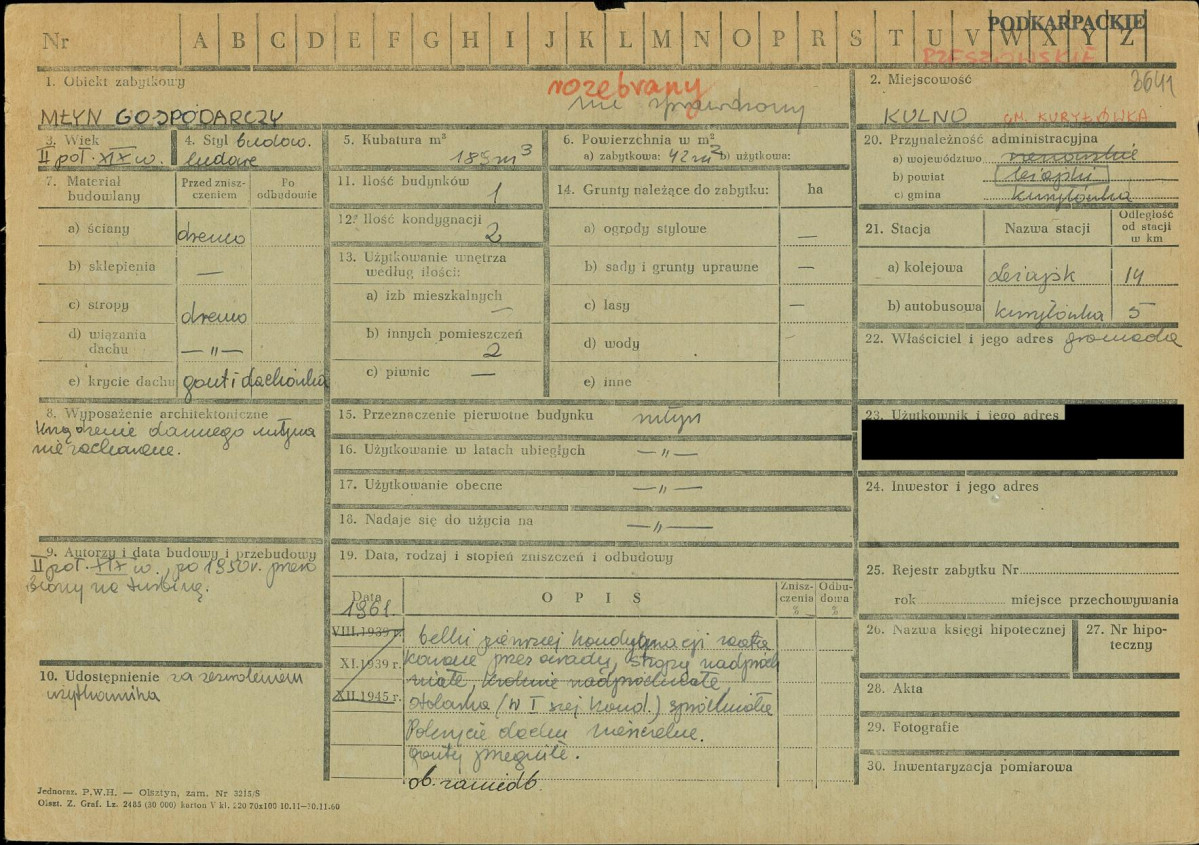 Nr A B C D E F G H I J K L M N O P R S T U V W X Y Z
PODKARPACKIE
RZESZOWSKIE
1. Obiekt zabytkowy
rozebrany
nie sprawdzony
MŁYN GOSPODARCZY
2. Miejscowość
3641
KULNO GM. KURYŁÓWKA
3. Wiek
II poł. XIX w.
4. Styl budow.
ludowe
5. Kubatura m³
185 m³
6. Powierzchnia w m²
a) zabytkowa: 42 m² b) użytkowa:
7. Materiał budowlany
Przed zniszczeniem
Po odbudowie
a) ściany drewno
b) sklepienia —
c) stropy drewno
d) wiązania dachu — " —
e) krycie dachu gont i dachówka
8. Wyposażenie architektoniczne
Urządzenie dawnego młyna
nie zachowane.
9. Autorzy i data budowy i przebudowy
II poł. XIX w., po 1950 r. przero
biony na turbinę.
10. Udostępnienie za zezwoleniem
użytkownika
11. Ilość budynków 1
12. Ilość kondygnacji 2
13. Użytkowanie wnętrza według ilości:
a) izb mieszkalnych —
b) innych pomieszczeń 2
c) piwnic —
14. Grunty należące do zabytku: ha
a) ogrody stylowe —
b) sady i grunty uprawne —
c) lasy —
d) wody -
e) inne
15. Przeznaczenie pierwotne budynku młyn
16. Użytkowanie w latach ubiegłych — " —
17. Użytkowanie obecne — " —
18. Nadaje się do użycia na — " —
19. Data, rodzaj i stopień zniszczeń i odbudowy
Data OPIS Zniszczenia % Odbudowa %
1961.
VIII.1939 r.
XI.1939 r.
XII.1945 r.
belki pierwszej kondygnacji
przez owady, stropy nadpróch
niałe,
(w I szej kond.) spróchniałe
Pokrycie dachu nieszczelne.
gonty przegniłe.
ob. zaniedb.
20. Przynależność administracyjna
a) województwo rzeszowskie
b) powiat leżajski
c) gmina Kuryłówka
21. Stacja Nazwa stacji Odległość od stacji w km
a) kolejowa Leżajsk 14
b) autobusowa Kuryłówka 5
22. Właściciel i jego adres gromada
23. Użytkownik i jego adres
24. Inwestor i jego adres
25. Rejestr zabytku Nr
rok miejsce przechowywania
26. Nazwa księgi hipotecznej
27. Nr hipoteczny
28. Akta
29. Fotografie
30. Inwentaryzacja pomiarowa
Jednoraz. P.W.H. — Olsztyn, zam. Nr 3215/S
Olszt. Z. Graf. Lz. 2485 (30 000) karton V kl. 220 70x100 10.11—30.11.60